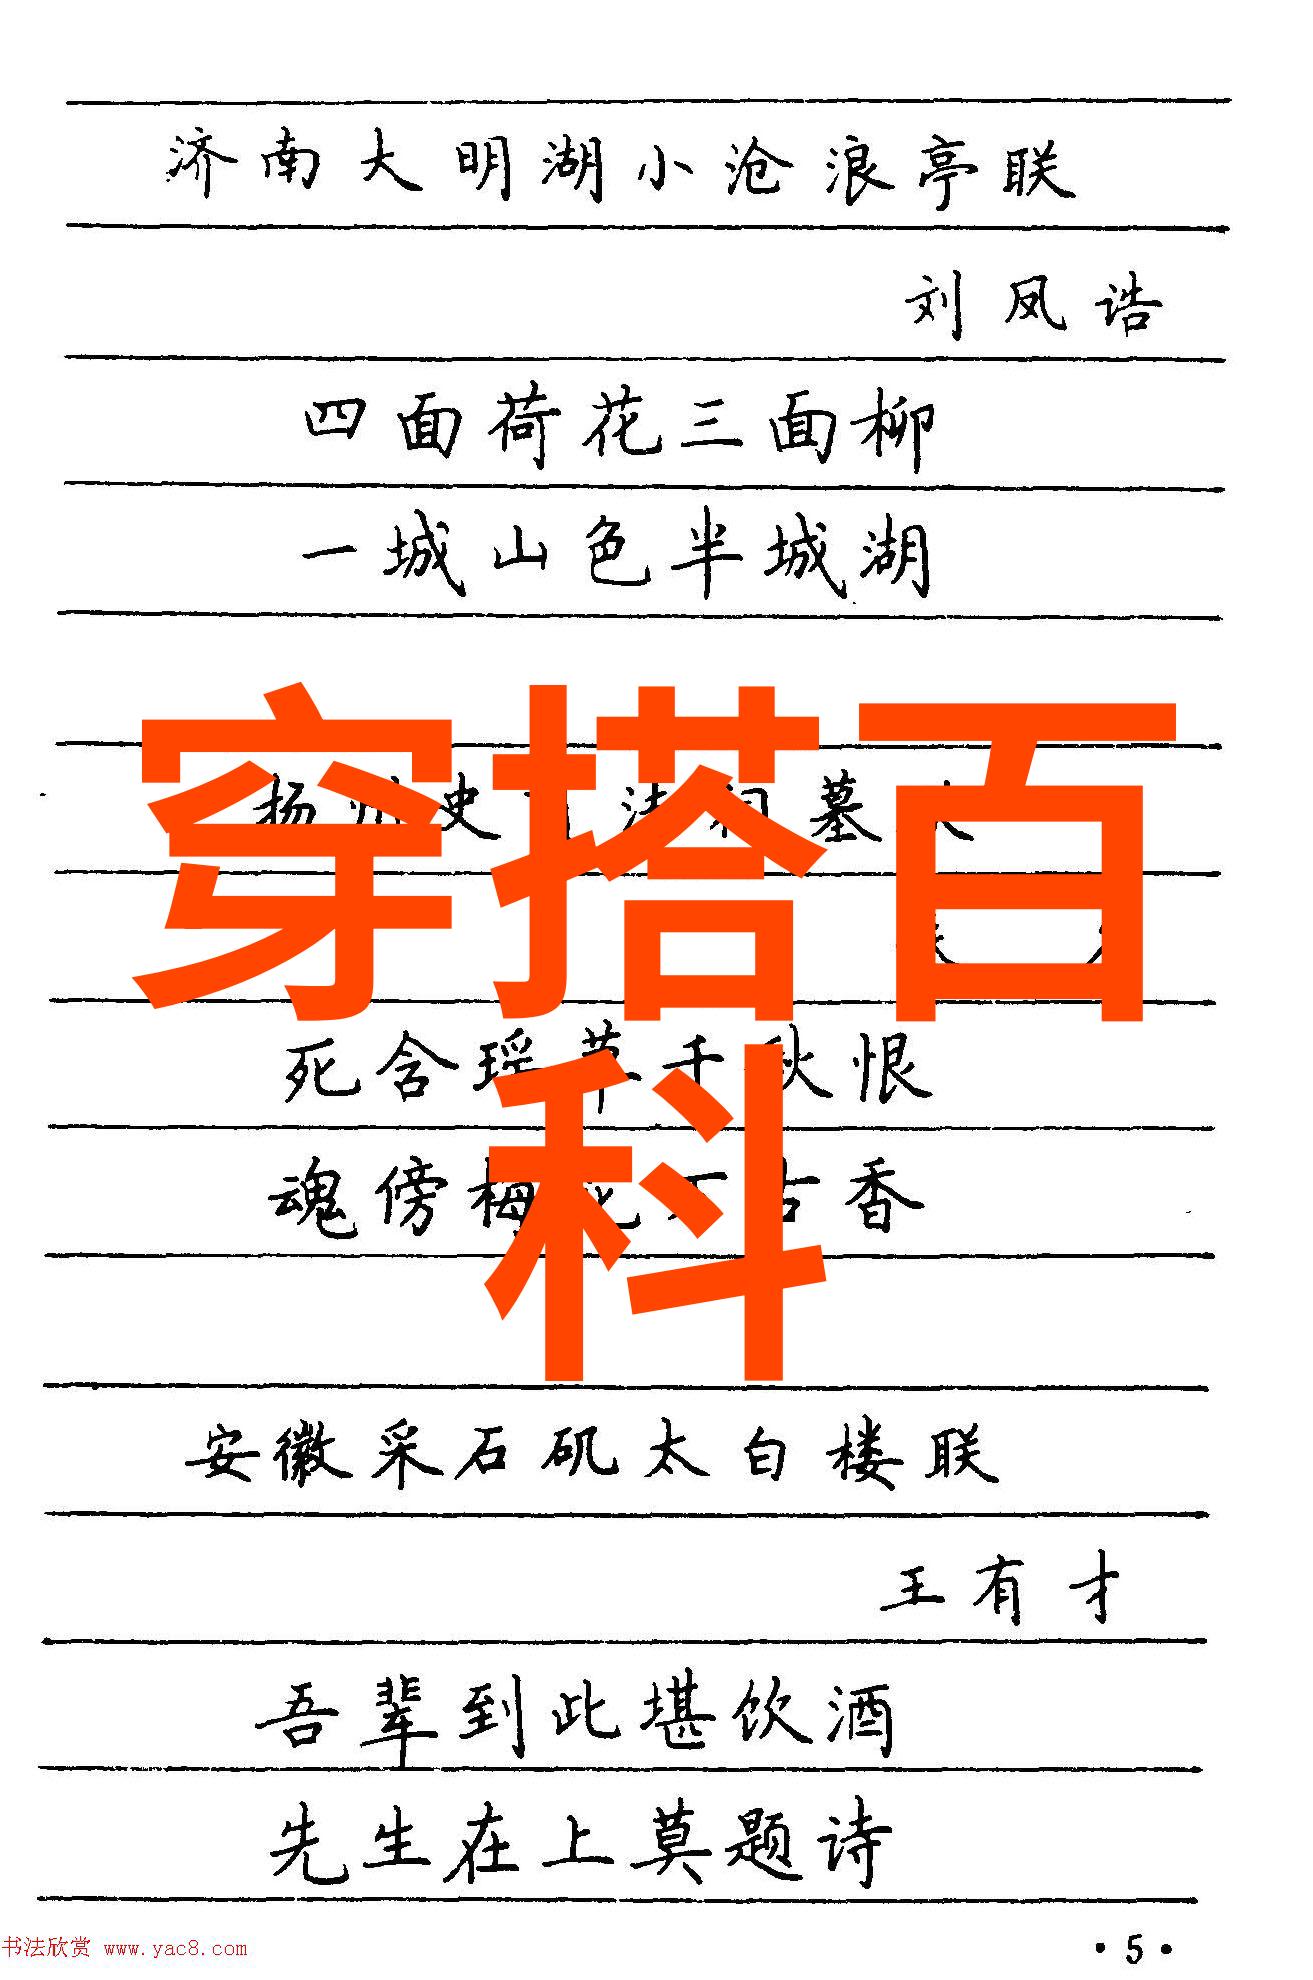 济南大明湖小沧浪亭联
刘凤诰
四面荷花三面柳
一城山色半城湖
穿搭百
扬州史可法祠墓
死含瑶草千秋恨
科
魂傍梅花万古香
安徽采石矶太白楼联
王有才
吾辈到此堪饮酒
先生在上莫题诗
书法欣赏 www.yac8.com
·5·